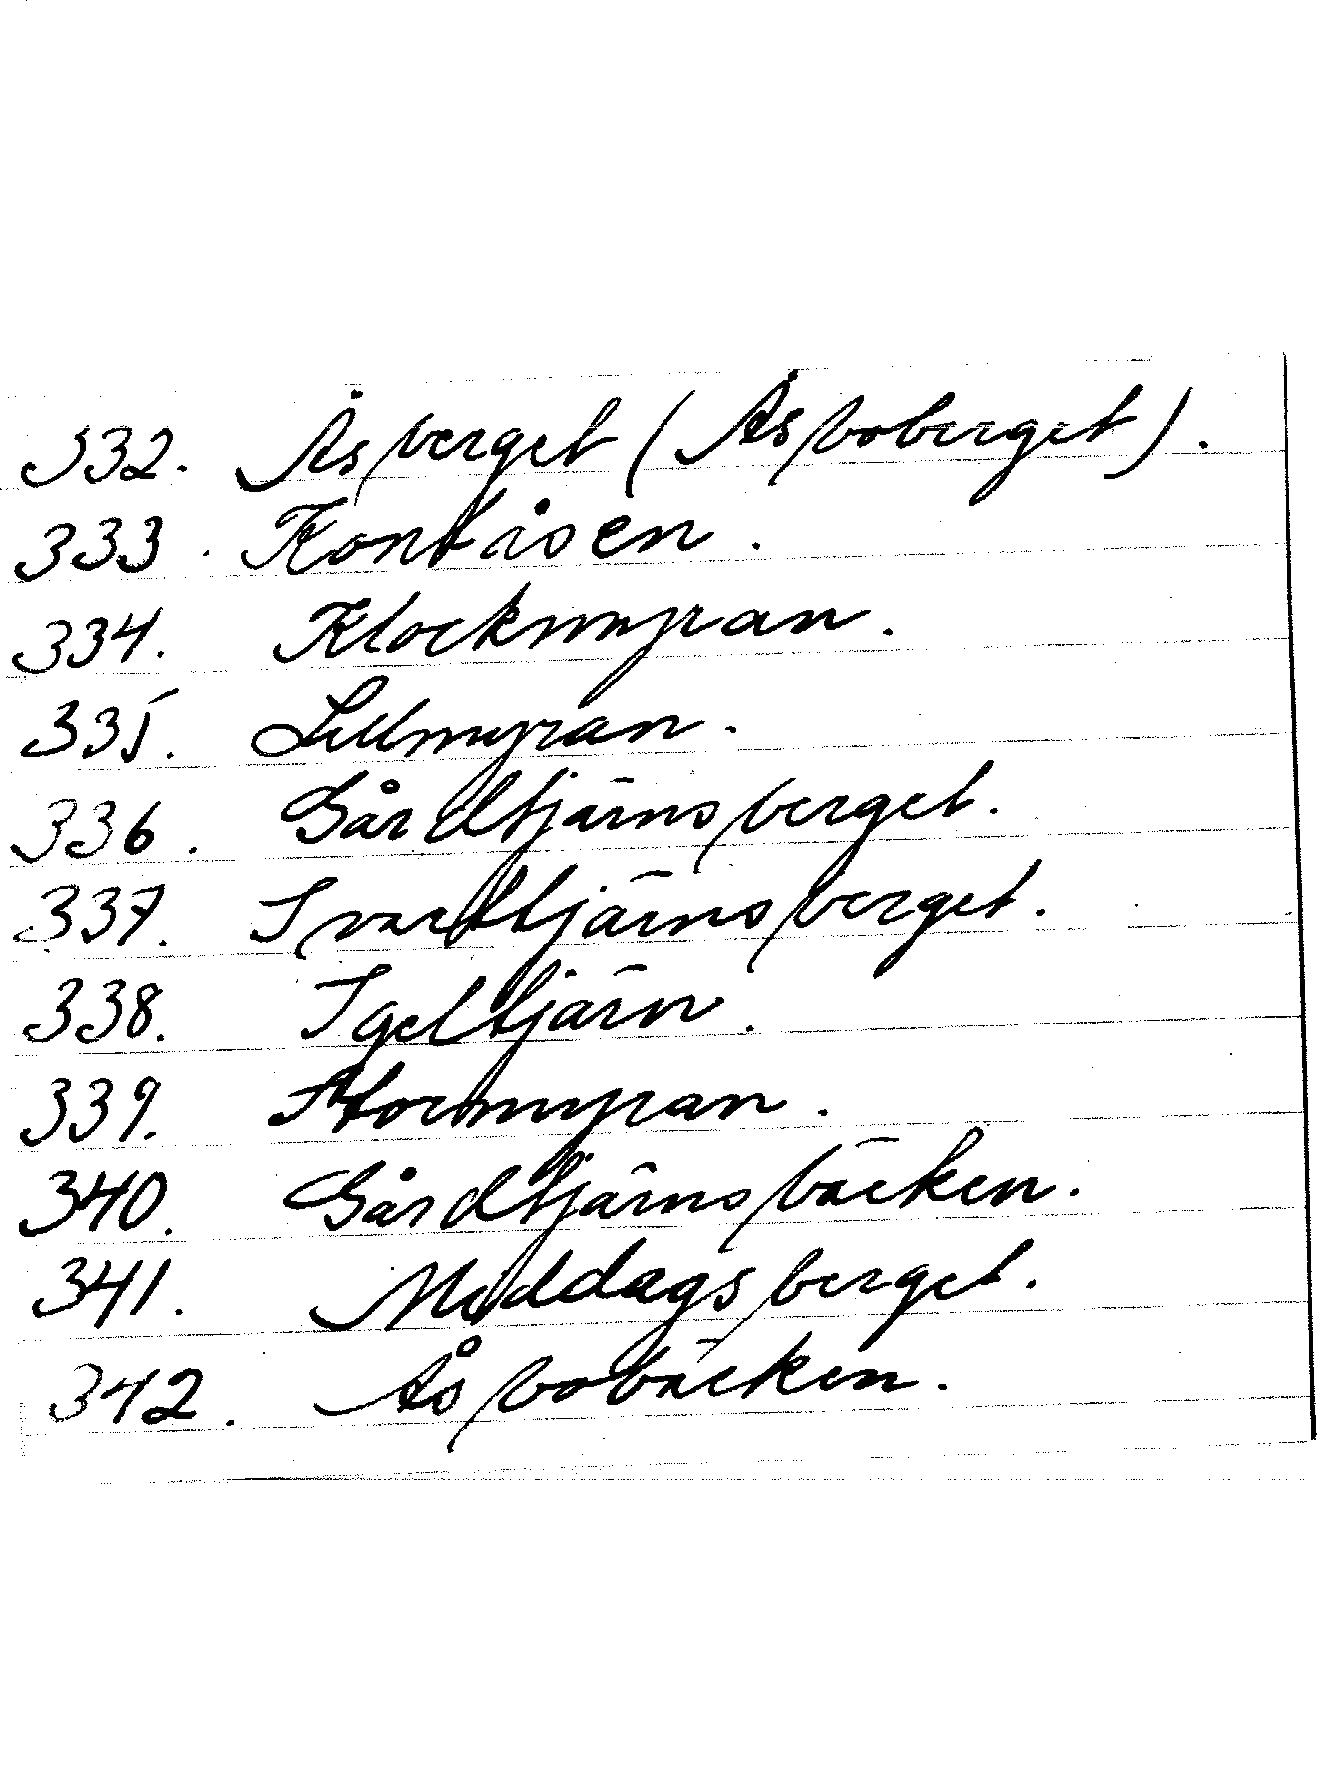 332. Åsberget (Åsboberget).
333. Kontåsen.
334. Klockmyran.
335. Lillmyran.
336. Gårdtjärnsberget.
337. Svarttjärnsberget.
338. Igeltjärn.
339. Stormyran.
340. Gårdtjärnsbäcken.
341. Middagsberget.
342. Åsbobäcken.